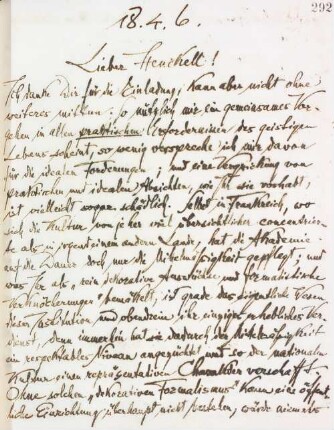 292
18.4.6.
Lieber Henckell!
Ich danke Dir für die Einladung, kann aber nicht ohne
weiteres mitthun. So nützlich mir ein gemeinsames Vor-
gehen in allen praktischen Erfordernissen des geistigen
Lebens scheint, so wenig verspreche ich mir davon
für die idealen Forderungen; und eine Verquickung von
praktischen und idealen Absichten, wie Ihr sie vorhabt,
ist vielleicht sogar schädlich. Selbst in Frankreich, wo
sich die Kultur von jeher viel übersichtlicher concentrier-
te als in irgend einem andern Lande, hat die Akademie
auf die Dauer doch nur die Mittelmäßigkeit gepflegt; und
was Ihr als "rein dekorative und formalistische
Verknöcherungen" bemäkelt, ist grade das eigentliche Wesen
dieser Institution und obendrein ihr einziges erhebliches Ver-
dienst, denn immerhin hat sie dadurch der Mittelmäßigkeit
ein respektables Niveau angezüchtet und so der nationalen
Kultur einen repräsentativen Charakter verschafft.
Ohne solchen "dekorativen Formalismus" kann eine öffent-
liche Einrichtung überhaupt nicht bestehen, würde niemals